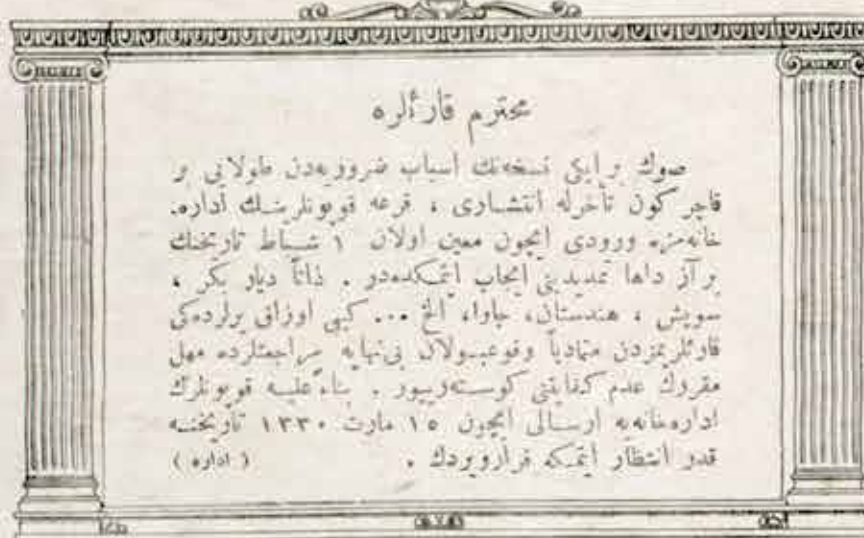 محترم قارئلره
صوك بر ایكی نسخه‌نك اسباب ضروریه‌دن طولایی بر
قاچر كون تأخرله انتشاری ، قرعه قوپونلرینك اداره‌
خانه‌مزه ورودی ایچون معین اولان ١ شباط تاریخنك
بر آز داها تمدیدینی ایجاب ایتمكده‌در . ذاتاً دیار بكر ،
سویش ، هندستان، جاوا، الخ ... كبی اوزاق یرلرده‌كی
قارئلریمزدن متمادیاً وقوعبولان بی‌نهایه مراجعتلرده مهل
مقررك عدم كفایتنی كوسته‌رییور . بناءً علیه قوپونلرك
اداره‌خانه‌یه ارسالی ایچون ١٥ مارت ١٣٣٠ تاریخنه
قدر انتظار ایتمكه قرار ویردك . ( اداره )